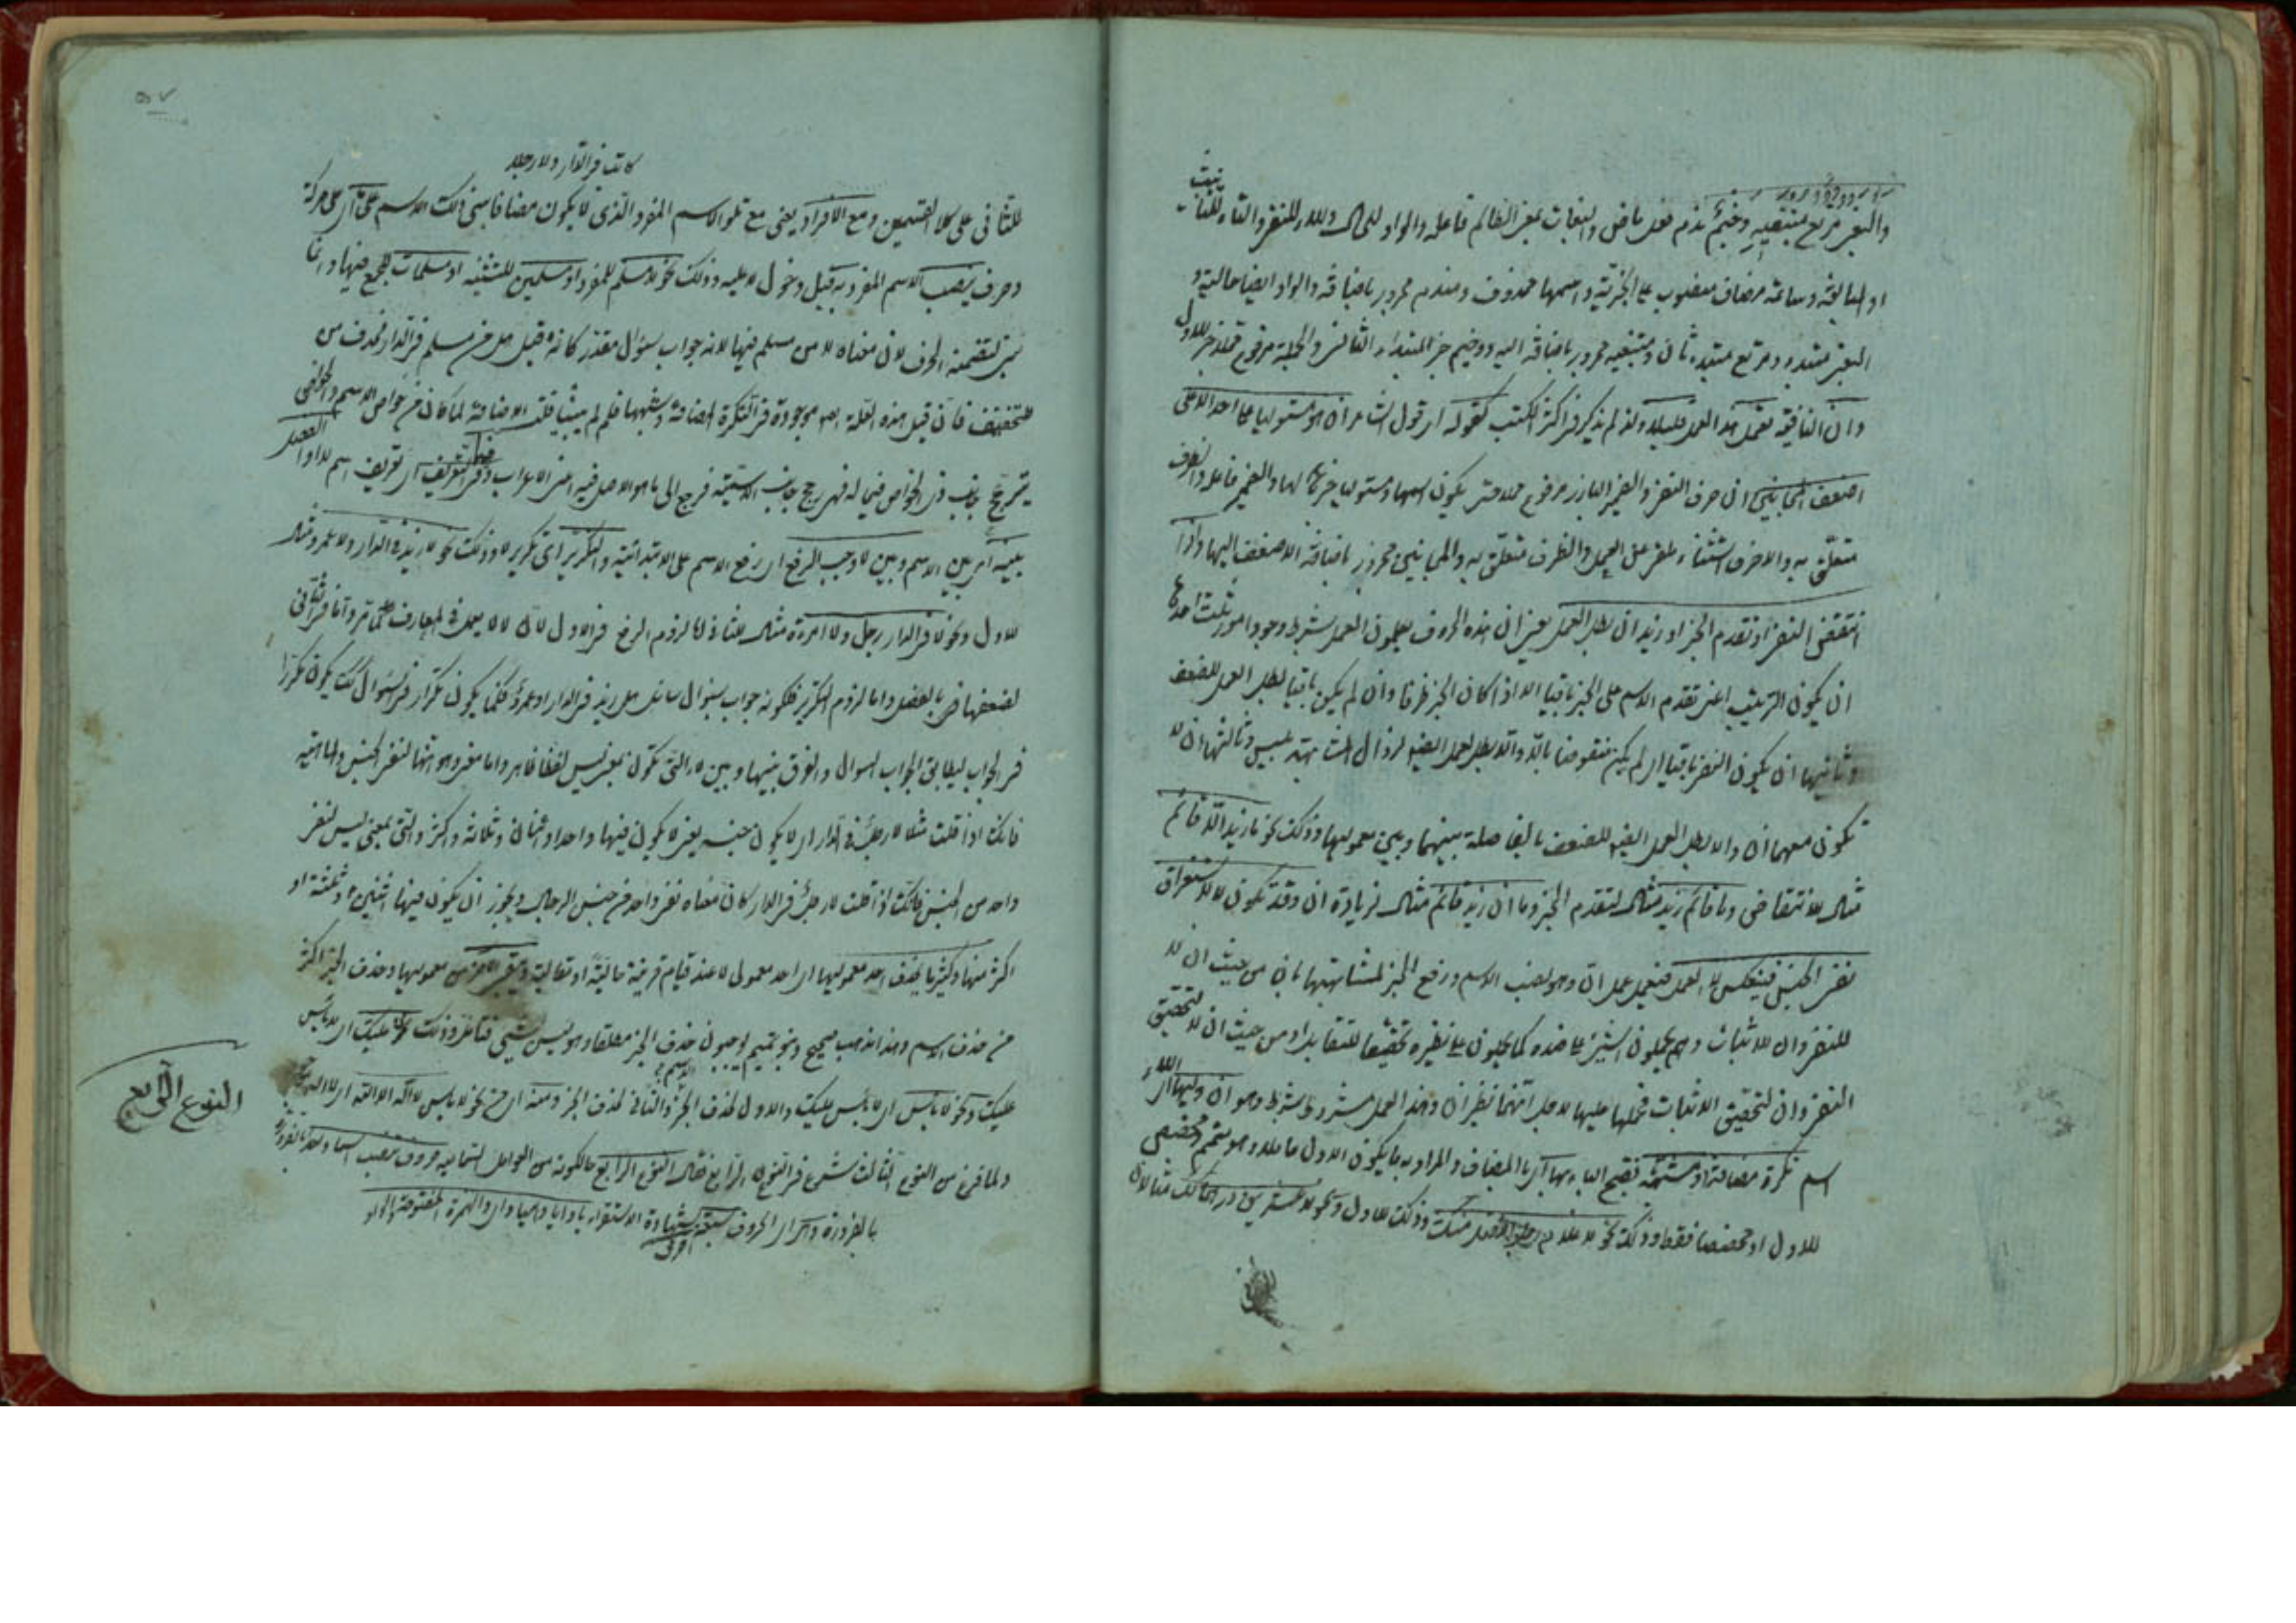 والبغى مرتع مبتغيه وخيم ندم فعل ماض والبغات بمعنى الظالم فاعله والواو للحال ولا للنفى والتاء للتأنيث
او المبالغة وساعة مضاف منصوب على الخبرية واسمها محذوف ومندم مجرور باضافة والواو ايضا حالية و
البغى مبتدء ومرتع مبتدء ثان ومبتغيه مجرور باضافة اليه ووخيم خبر المبتداء الثانى والجملة مرفوع محلا خبر للاول
وان النافية تعمل هذا العمل قليلا ولذ لم يذكر فى اكثر الكتب كقوله اى قول الشاعر ان هو مستوليا على احد الا على
اضعف المجانين ان حرف النفى والضمير البارز مرفوع محلا حتى يكون اسمها ومستوليا خبر لها والضمير فاعل والظرف
متعلق به والا حرف استثناء ملغى عن العمل والظرف متعلق به والمجانين مجرور باضافة الاضعف اليها واذا
انتقض النفى او تقدم الخبر او زيد ان بطل العمل يعنى ان هذه الحروف يعملون العمل بشرط وجود امور ثلث احدها
ان يكون الترتيب اعنى تقدم الاسم على الخبر باقيا الا اذا كان الخبر ظرفا وان لم يكن باقيا بطل العمل للضعف
وثانيها ان يكون النفى باقيا اى لم يكن منقوضا بالا والا بطل العمل ايضا لزوال المشابهة بليس وثالثها ان لا
تكون معها ان والا بطل العمل ايضا للضعف بالفاصلة بينهما وبين معموليها وذلك نحو ما زيد الا قائم
مثال للانتقاض وما قائم زيد مثال لتقدم الخبر وما ان زيد قائم مثال لزيادة ان وقد تكون لا لاستغراق
نفى الجنس فينعكس العمل فتعمل عمل ان وهو نصب الاسم ورفع الخبر لمشابهتها بان من حيث ان لا
للنفى وان للاثبات وهم يحملون الشئ على ضده كما يحملون على نظيره تحقيقا للتقابل او من حيث ان لا لتحقيق
النفى وان لتحقيق الاثبات فحملها عليها لاجل انهما نظيران وهذا العمل مشروط بشرط وهو ان وليها
اسم نكرة مضافة او مشبهة بفتح الباء بها اى بالمضاف والمراد به ما يكون الاول عاملا وهو متمم مخصص
للاول او مخصصا فقط وذلك نحو لا غلام رجل افضل منك وذلك للاول ونحو لا عشرين درهما لك مثالان
كانت فى الدار ولا رجلا
للثانى على كلا القسمين ومع الافراد يعنى مع تلو الاسم المفرد الذى لا يكون مضافا بنى ذلك الاسم على حركة
وحرف ينصب الاسم المفرد به قبل دخول لا عليه وذلك نحو لا مسلم للمفرد او مسلمين للتثنية او مسلمات للجمع فيها وانما
بنى لتضمنه الحرف لان معناه لا من مسلم فيها لانه جواب سؤال مقدر كانه قيل هل من مسلم فى الدار فحذف من
للتخفيف فان قيل هذه العلة موجودة فى النكرة المضافة وشبهها فلم لم يبنيا قلت الاضافة لما كان من خواص الاسم
يترجح جانب الاسمية فرجع الى ما هو الاصل فيه اعنى الاعراب وفى التعريف اى تعريف اسم لا او الفصل
بينه اى بين الاسم وبين لا وجب الرفع اى رفع الاسم على الابتدائية والتكرير اى تكرير لا وذلك نحو لا زيد فى الدار ولا عمرو مثال
للاول ونحو لا فى الدار رجل ولا امرءة مثال للثانى اما لزوم الرفع فى الاول لان لا لا يعمل فى المعارف كما مر واما فى الثانى
لضعفها من بالفصل واما لزوم التكرير فلكونه جواب سؤال سائل هل زيد فى الدار او عمرو فكما يكون تكرار فى السؤال كذلك يكون مكررا
فى الجواب ليطابق الجواب السؤال والفرق بينها وبين لا التى تكون بمعنى ليس لفظا ظاهر واما معنى وهو انها لنفى الجنس والماهية
فانك اذا قلت مثلا لا رجل فى الدار اى لا يكون جنسه يعنى لا يكون فيها واحد او اثنان وثلاثة واكثر والتى بمعنى ليس لنفى
واحد من الجنس فانك اذا قلت لا رجل فى الدار كان معناه نفى واحد من جنس الرجال ويجوز ان يكون فيها اثنين او ثلثة او
اكثر منها وكثيرا ما يحذف احد معموليها اى احد معمولى لا عند قيام قرينة حالية او مقالية معموليها وحذف الخبر اكثر
من حذف الاسم وهذا مذهب صحيح وبنو تميم يوجبون حذف الخبر مطلقا وهو ليس بشئ فتأمل وذلك نحو لا عليك اى لا بأس
عليك ونحو لا بأس اى لا بأس عليك والاول لحذف الاسم والثانى لحذف الخبر ومنه نحو لا بأس لا اله الا الله اى لا اله
ولما فرغ من النوع الثالث شرع فى النوع الرابع فقال النوع الرابع حالكونه من العوامل السماعية حروف تنصب اسما
بالضرورة وتلك الحروف سبعة احرف بشهادة الاستقراء يا وايا وهيا واى والهمزة المفتوحة والواو
النوع الرابع